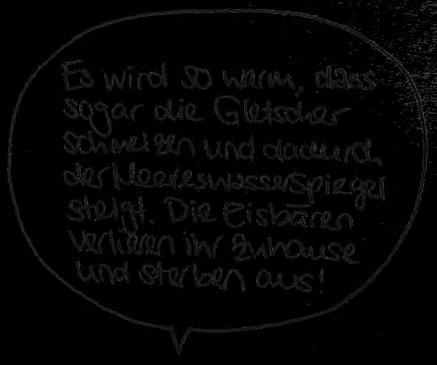 Es wird so warm, dass
sogar die Gletscher
schmelzen und dadurch
der Meereswasserspiegel
steigt. Die Eisbären
verlieren ihr Zuhause
und sterben aus!